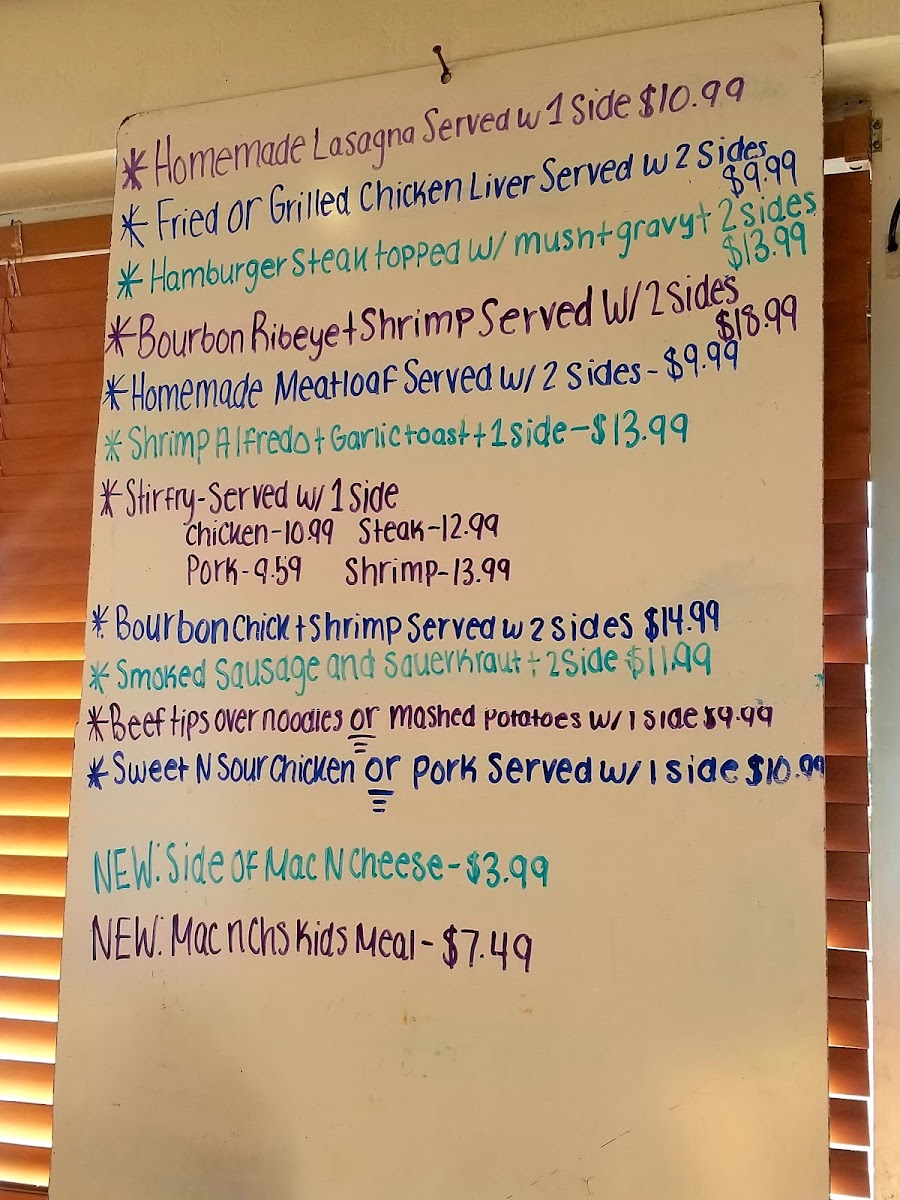 * Homemade Lasagna Served w 1 Side $10.99
* Fried or Grilled Chicken Liver Served w 2 Sides
$9.99
* Hamburger Steak topped w/ mush + gravy + 2 sides
$13.99
* Bourbon Ribeye + Shrimp Served W/ 2 Sides
$18.99
* Homemade Meatloaf Served w/ 2 Sides - $9.99
* Shrimp Alfredo + Garlic toast + 1 side - $13.99
* Stirfry - Served w/ 1 Side
Chicken - 10.99 Steak - 12.99
Pork - 9.59 Shrimp - 13.99
* Bourbon Chick + Shrimp Served w 2 Sides $14.99
* Smoked Sausage and Sauerkraut + 2 Side $11.99
* Beef tips over noodles or mashed potatoes w/ 1 side $9.99
* Sweet N Sour Chicken or pork Served w/ 1 side $10.99
NEW: Side of Mac N Cheese - $3.99
NEW: Mac n Chs Kids Meal - $7.49